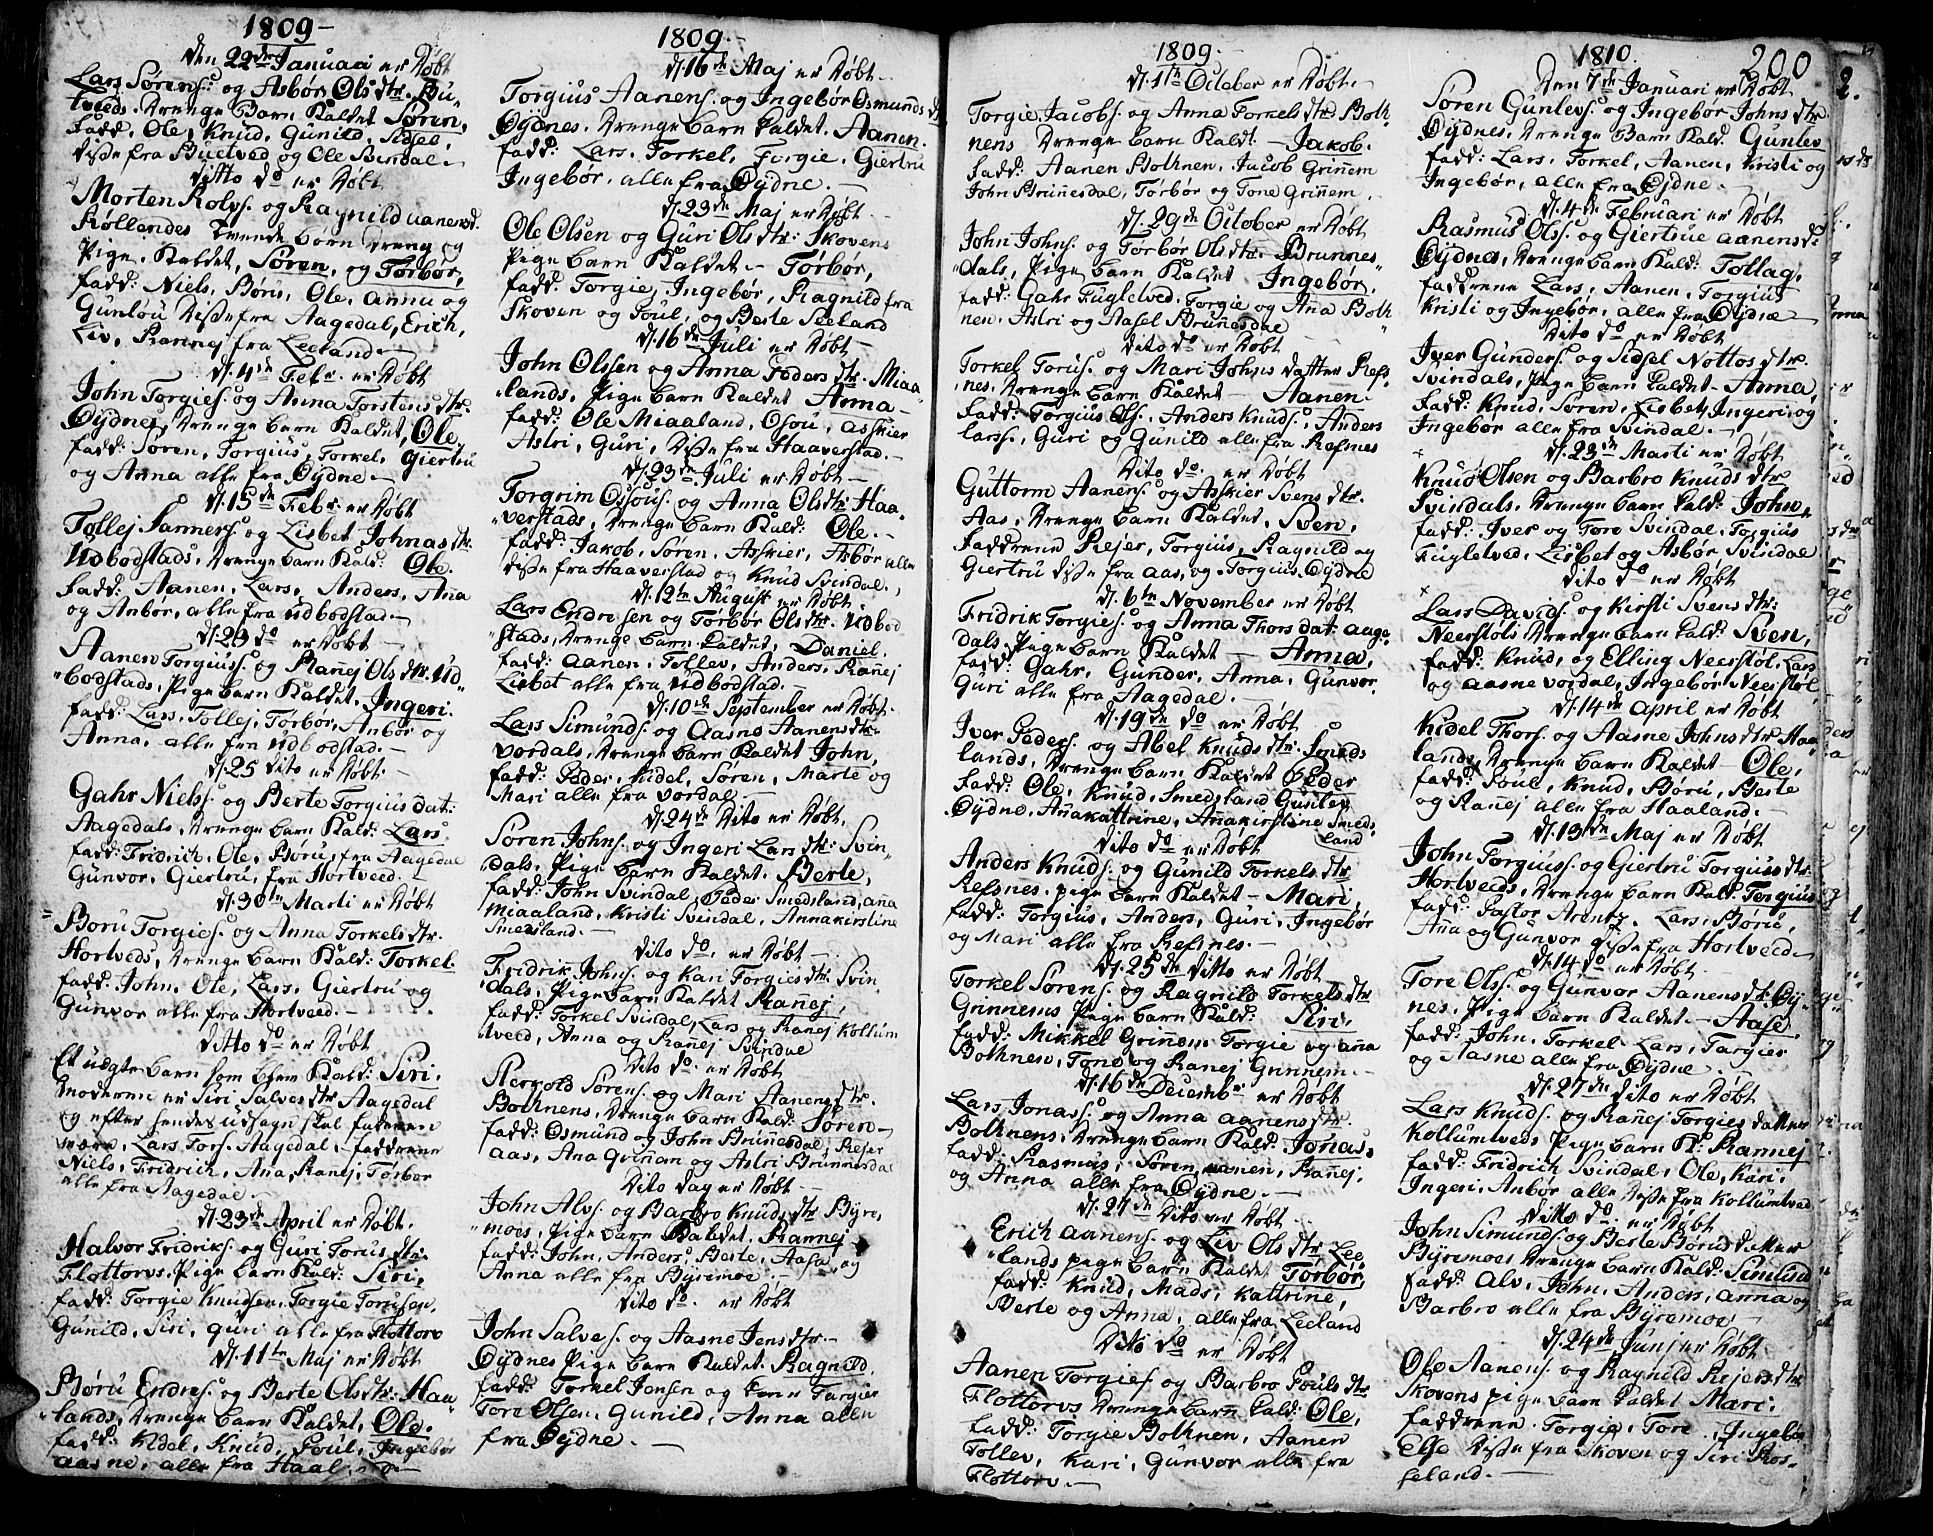 1809
den 22de Januari er Døbt
Lars Sørens: og Asbør Olsdtr. Bu-
tveds. Drenge Barn Kaldet Søren,
fadd. Ole, Knud, Gunild, Sidsel,
diße fra Buetved og Ole Svindal.
ditto do er Døbt
Morten Rolvs. og Ragnild Aanensd.
Røllandes tvende børn dreng og
Pige. Kaldet, Søren, og Torbør,
fadd: Niels, Børu, Ole, Anna og
Gunlou diße fra Aagedal, Erich,
Liv, Rannej fra Leeland.
d. 4de Febr. er Døbt
John Torgies: og Anna Torstensdtr.
Øydnes, drenge barn Kaldet, Ole,
fadd: Søren, Torgius, Torkel, Giertru
og Anna alle fra Øydne.
d. 15de Febr. er Døbt
Tollej Sanners: og Lisbet Johnasdtr.
Udbodstads, drenge barn Kald: Ole.
fadd: Aanen, Lars, Anders, Aña
og Anbør, alle fra Udbodstad.
d. 23 do er Døbt
Aanen Torgiuss: og Rañej Olsdtr. Ud-
bodstads, Pige barn Kaldet, Ingeri.
fadd: Lars, Tollej, Torbor, Anbør og
Anna, alle fra Udbodstad.
d. 25 dito er Døbt
Gahr Niels: og Berte Torgiusdat:
Aagedals, drenge barn Kald: Lars.
fadd: Fridrich, Ole, Børu, fra Aagedal
Gunvor, Giertru, fra Hortveed.
d. 30te Marti er Døbt
Børu Torgies: og Anna Torkelsdtr.
Hortveds, drenge barn Kald: Torkel.
fadd: John, Ole, Lars, Giertru og
Gunvor alle fra Hortveed.
ditto do er Døbt
Et udgte barn som blev Kald: Siri.
moderen er Siri Salvesdtr Aagedal
og efter hendes udsagn skal faderen
være, Lars Tors. Aagedal, faddrene
Niels, Fridrich, Ana, Ranej, Torbor
alle fra Aagedal.
d. 23de April er Døbt.
Halvor Fridriks: og Guri Torusdtr:
Flottorvs. Pige barn Kald: Siri,
fadd: Torgie Knudsen, Torgie Torusen,
Gunild, Siri, guri alle fra Flottorv
d. 11te Maj er Døbt
Børu Endres: og Berte Olsdtr: Haa-
lands, drenge barn Kaldet, Ole.
fadd: Kidel, Knud, Poul, Ingebør
aasne, alle fra Haaland
1809.
d. 16de Maj er Døbt
Torgius Aanens. og Ingebør Osmundsdtr
Øydnes. drenge barn kaldet. Aanen.
fadd: Lars, Torkel, Torgie, Giertru
Ingebør. alle fra Øydne.
d. 23de Maj er Døbt
Ole Olsen og Guri Olsdtr: Skovens
Pige barn Kaldet. Torbør,
fadd: Torgie, Ingebør, Ragnild fra
Skoven og Poul, og Berte Seeland
d. 16de Juli er Døbt
John Olssen og Anna Pedersdtr. Miaa
lands, Pige barn Kaldet Anna
fadd: Ole Miaaland, Osou, Asskier
Astri, Guri, diße fra Haaverstad.
d. 23de Juli er Døbt
Torgrim Osous: og Anna Olsdtr Haa-
verstads, drenge barn Kald: Ole.
fadd: Jakob, Søren, Asskier, Asbør alle
diße fra Haaverstad og Knud Svindal.
d. 12te August er Døbt
Lars Endresen og Torbør Olsdtr. Udbod
stads, drenge barn Kaldet, Daniel.
fadd: aanen, Tollev, Anders, Rañej
Lisbet alle fra Udbodstad.
d. 10de September er Døbt
Lars Simunds: og Aasne Aanensdtr:
Vordals, drenge barn Kaldet John,
fadd: Peder, Kidel, Søren, Marte og
Mari alle fra Vordal.
d. 24de Dito er Døbt.
Søren Johns: og Ingeri Larsdtr: Svin-
dals, Pige barn Kaldet. Berte,
fadd: John Svindal, Peder Smedsland, aña
Miaaland, Kristi Svindal, Annakirstine
Smedsland.
Dito do. er Døbt
Fridrik Johns: og Kari Torgiesdtr, Svin-
dals, Pige barn Kaldet Rañej,
fadd: Torkel Svindal, Lars og Rañej Kollum
tveed, Anna og Rañej Svindal
Dito do. er Døbt
Nervold Sørens: og Mari Aanensdtr.
Bolhnens, drenge barn Kald: Søren,
fadd: Osmund og John Brunesdal, Rejer
aas, Ana Griñem og Astri Brunnesdal
Dito Dag er Døbt
John Alvs: og Barbro Knudsdtr Byre,
moes, Pige barn Kaldet, Rannej
fadd: John, Anders, Berte, Aasa, og
Anna alle fra Byremoe.
Dito do. er Døbt
John Salves: og Aasne Jensdtr
Øydnes Pige barn Kaldet. Ragnild.
fadd: Torkel Jensen og Torgier
Tore Olsen. Gunild, Anna alle
fra Øydne.
1809.
d. 1te October er Døbt.
Torgie Jacobs: og Anna Torkelsdtr Bolh-
nens drenge barn Kaldt. Jakob.
fadd: Aanen Bolhnen, Jacob Griñem
John Bruñesdal, Torbør og Tone Griñem.
d. 29de October er Døbt
John Johns: og Torbør Olsdtr. Brunnes-
dals, Pige barn Kaldet Ingebør.
fadd: Gahr Fugletved, Torgie og Ana Bolh-
nen, Astri og Aasel Bruñesdal
dito do er Døbt
Torkel Torus: og Mari Johns datter Refs-
nes. drenge barn Kaldet Aanen.
fadd: Torgius Ols, Anders Knuds, Anders
Larss, Guri og Gunild alle fra Refsnes
Dito do. er Døbt
Guttorm Aanens: og Asskier Svensdtr.
Aas, drenge barn Kaldet. Sven.
faddrene Rejer, Torgius, Ragnild og
Giertru diße fra Aas, og Torgius Øydne
d. 6te November er Døbt
Fridrik Torgies: og Anna Thorsdat: Aage
dals. Pige barn Kaldet Anna.
fadd: Gahr, Gunder, Anna, Gunvor.
Guri alle fra Aagedal.
d. 19de do er Døbt
Iver Peders: og Abel Knudsdtr: Smeds
lands, drenge barn Kaldet Peder
fadd: Ole, Knud, Smedsland Gunlev
Øydne, Anakattrine, Anakirstine Smeds
land
Dito do er Døbt
Anders Knuds: og Gunild Torkelsdtr
Refsnes. pige barn Kaldet Mari,
fadd: Torgius, Anders, Guri, Ingebør
og Mari alle fra Refsnes.
d. 25de ditto er Døbt
Torkel Sørens: og Ragnild Torkelsdtr
Grinnems Pige barn Kald: Siri.
fadd: Mikkel Griñem Torgie og aña
Bolhnen, Tone og Ranej Grinnem.
d. 16de Decembr er Døbt
Lars Jonas: og Anna Aanensdtr
Bolhnens, drenge barn Kald: Jonas,
fadd: Rasmus, Søren, Aanen, Rañej.
og Anna alle fra Øydne.
d. 27de Dito er Døbt
Erich Aanens: og Liv Olsdtr Lee-
lands pige barn Kaldet Torbør,
fadd: Knud, Mads, Kattrine,
Berte og Anna, alle fra Leeland
Dito do er Døbt
Aanen Torgies: og Barbro Poulsdtr
Flottorvs drenge barn Kald: Ole,
fadd: Torgie Bolhnen, Aanen
Tollev, Kari, Gunvor alle fra
Flottorv.
1810. 200
Den 7de Januari er Døbt
Søren Gunlevs: og Ingebør Johnsdtr
Øydnes, drenge barn Kald: Gunlev
fadd: Lars, Torkel, Aanen, Kristi og
Ingebør, alle fra Øydne.
d. 4de Februari er Døbt
Rasmus Ols: og Giertrue Aanensd:
Øydnes, drenge barn Kald: Tollag,
faddrene Lars, Aanen, Torgius
Kristi og Ingebør, alle fra Øydnæ
Dito do er Døbt
Iver Gunders: og Sidsel Nottosdtr.
Svindals, pige barn Kaldet Anna,
fadd: Knud, Søren, Lisbet, Ingeri, og
Ingebør alle fra Svindal.
d. 23de Marti er Døbt
Knud Olsen og Barbro Knudsdtr
Svindals, drenge barn Kald: John,
fadd: Iver og Tore Svindal, Torgius
Fugletved, Lisbet og Asbør Svindal
dito do er Døbt
Lars Davids: og Kirsti Svensdtr:
Neerstøls drenge barn Kald: Sven,
fadd: Knud, og Elling Neerstøl, Lars
og Aasne Vordal, Ingebør Neerstøl.
d. 14de April er Døbt
Kidel Thors: og Aasne Johnsdtr Haa-
lands, drenge barn Kaldet Ole,
fadd: Poul, Knud, Børu, Berte
og Rañej alle fra Haaland.
d. 13de Maj er Døbt
John Torgiuss: og Giertru Torgiusdtr
Hortveds, drenge barn Kald: Torgius.
fadd: Pastor Arentz, Lars, Børu,
Aña og Gunvor diße fra Hortveed.
d. 14 do er Døbt.
Tore Ols: og Gunvor Aanensdtr: Øyd-
nes, Pige barn Kaldet. Aase.
fadd: John, Torkel, Lars, Torgier
og Aasne alle fra Øydne.
d. 27de dito er Døbt
Lars Knuds: og Rañej Torgies datter
Kollumtveds Pige barn K: Rannej
fadd: Fridrich Svindal, Ole, Kari,
Ingeri, Anbør alle diße fra Kollumtved
ditto do er Døbt
John Simunds: og Berte Børus datter
Byremoes drenge barn Kald: Simund
fadd: Alv, John, Anders, Anna og
Barbro alle fra Byremoe.
d. 24de Junj er Døbt
Ole Aanens: og Ragnild Rejersdtr
Skovens pige barn Kaldet Mari.
faddrene Torgie, Tore, Ingebør
Else diße fra Skoven og Siri Ros-
seland.